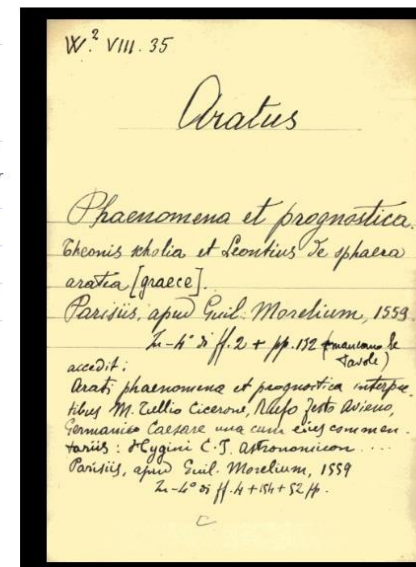 W.² VIII. 35
Aratus
Phaenomena et prognostica.
Theonis scholia et Leontius de sphaera
aratea [graece].
Parisiis, apud Guil. Morelium, 1559
In-4° di ff. 2 + pp. 132 (mancano le
tavole)
accedit:
Arati phaenomena et prognostica interpre
tibus M. Tullio Cicerone, Rufo Festo Avieno,
Germanico Caesare una cum eius commen.
tariis: Hygini C. J. astronomicon ....
Parisiis, apud Guil. Morelium, 1559
In-4° di ff. 4 + 154 + 52 pp.